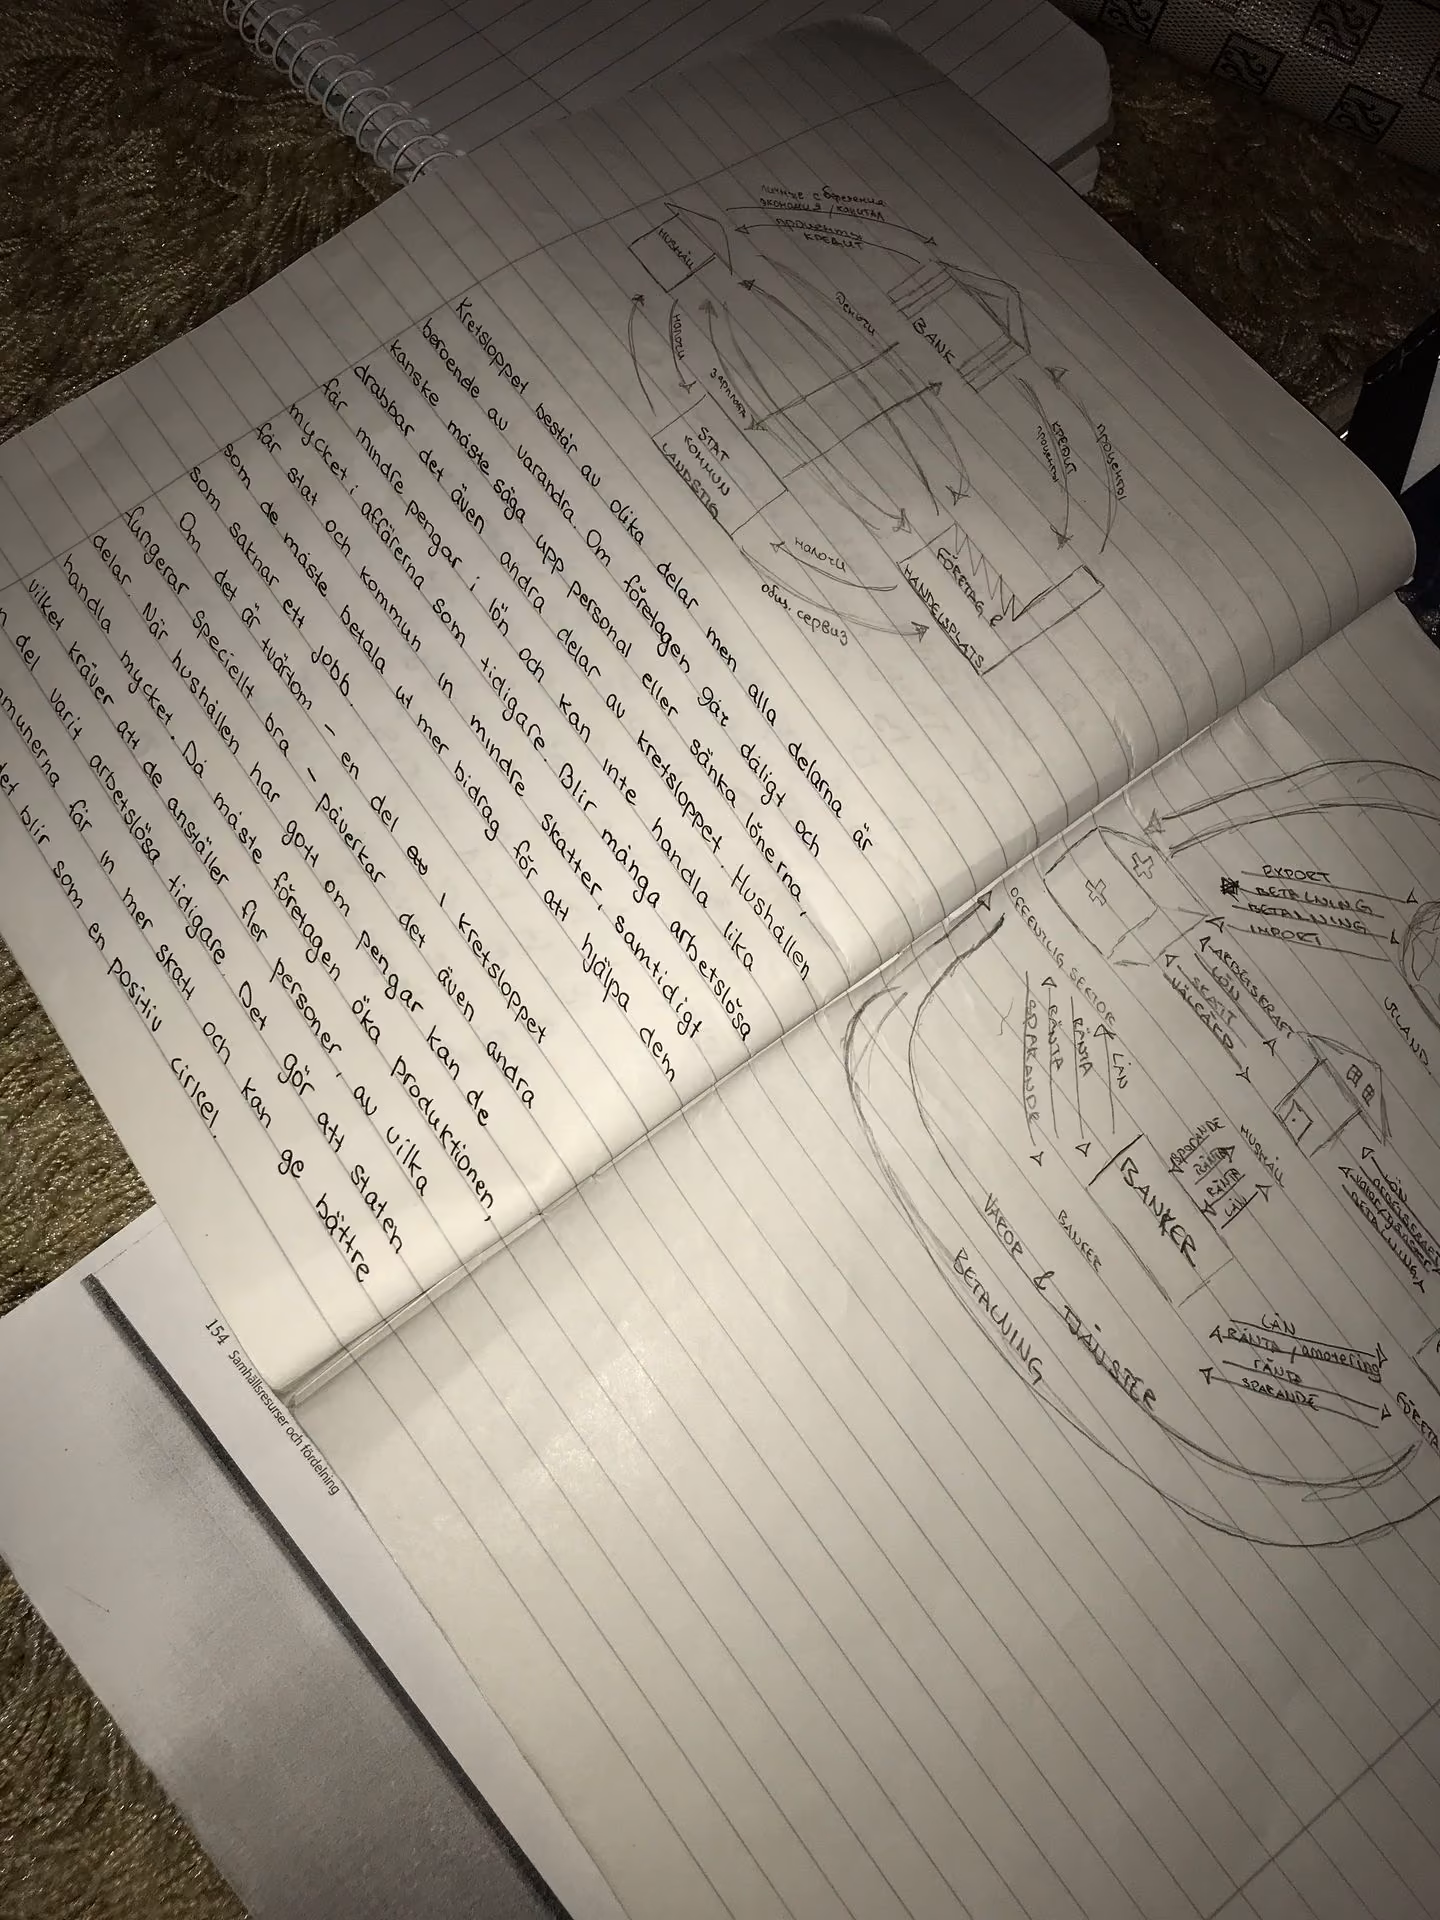 личные сбережения
экономия / капитал
проценты
кредит
HUSHÅLL
BANK
деньги
налоги
зарплата
STAT
KOMMUN
LANDSTIG
кредит
проценты
проценты
FÖRETAG &
HANDELSPLATS
налоги
общ. сервиз
Kretsloppet består av olika delar men alla delarna är
beroende av varandra. Om företagen går dåligt och
kanske måste säga upp personal eller sänka lönerna,
drabbar det även andra delar av kretsloppet. Hushållen
får mindre pengar i lön och kan inte handla lika
mycket i affärerna som tidigare. Blir många arbetslösa
får stat och kommun in mindre skatter, samtidigt
som de måste betala ut mer bidrag för att hjälpa dem
som saknar ett jobb.
Om det är tvärtom - en del i kretsloppet
fungerar speciellt bra - påverkar det även andra
delar. När hushållen har gott om pengar kan de
handla mycket. Då måste företagen öka produktionen,
vilket kräver att de anställer fler personer, av vilka
n del varit arbetslösa tidigare. Det gör att staten
mmunerna får in mer skatt och kan ge bättre
det blir som en positiv cirkel.
EXPORT
BETALNING
BETALNING
IMPORT
UTLAND.
OFFENTLIG SEKTOR
ARBETSKRAFT
LÖN
SKATT
VÄLFÄRD
LÅN
RÄNTA
RÄNTA
SPARANDE
HUSHÅLL
SPARANDE
RÄNTA
RÄNTA
LÅN
BANKER
BANKER
LÖN
ARBETSKRAFT
VAROR/TJÄNSTER
BETALNING
LÅN
RÄNTA/amortering
RÄNTA
SPARANDE
FÖRETA
VAROR & TJÄNSTER
BETALNING
154 Samhällsresurser och fördelning